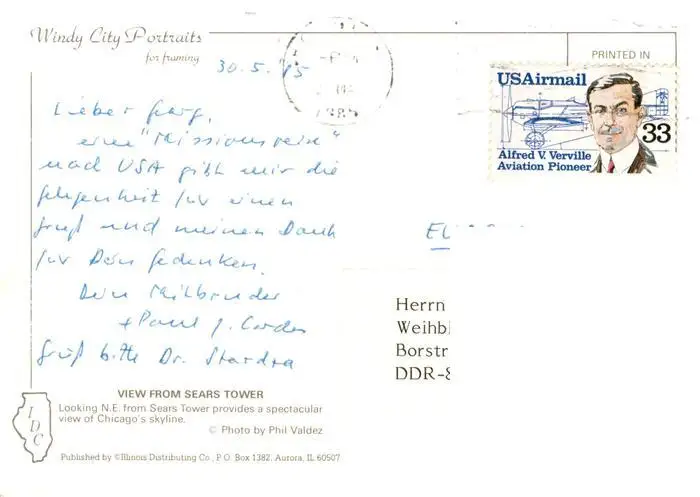 Windy City Portraits
for framing
PRINTED IN
30.5.85
USAirmail
33
Alfred V. Verville
Aviation Pioneer
Lieber
eine "Missionsreise"
nach USA gibt mir die
Gelegenheit für einen
Gruß und meinen Dank
für Dein Gedenken.
Dein Mitbruder
+Paul J. Cordes
Gruß bitte Dr.
Herrn
Weihbi
Borstr
DDR-8
VIEW FROM SEARS TOWER
Looking N.E. from Sears Tower provides a spectacular
view of Chicago's skyline.
© Photo by Phil Valdez
IDC
Published by ©Illinois Distributing Co., P.O. Box 1382, Aurora, IL 60507